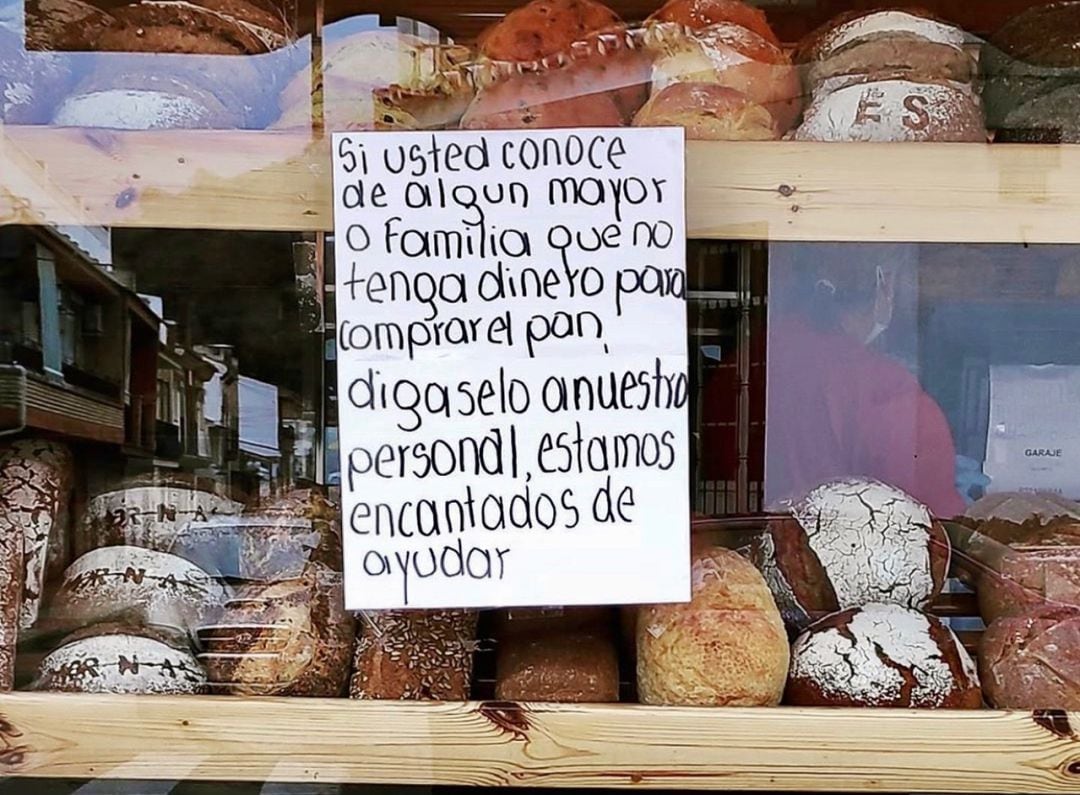 ES
Si usted conoce
de algun mayor
o familia que no
tenga dinero para
comprar el pan,
digaselo a nuestro
personal, estamos
encantados de
ayudar
GARAJE